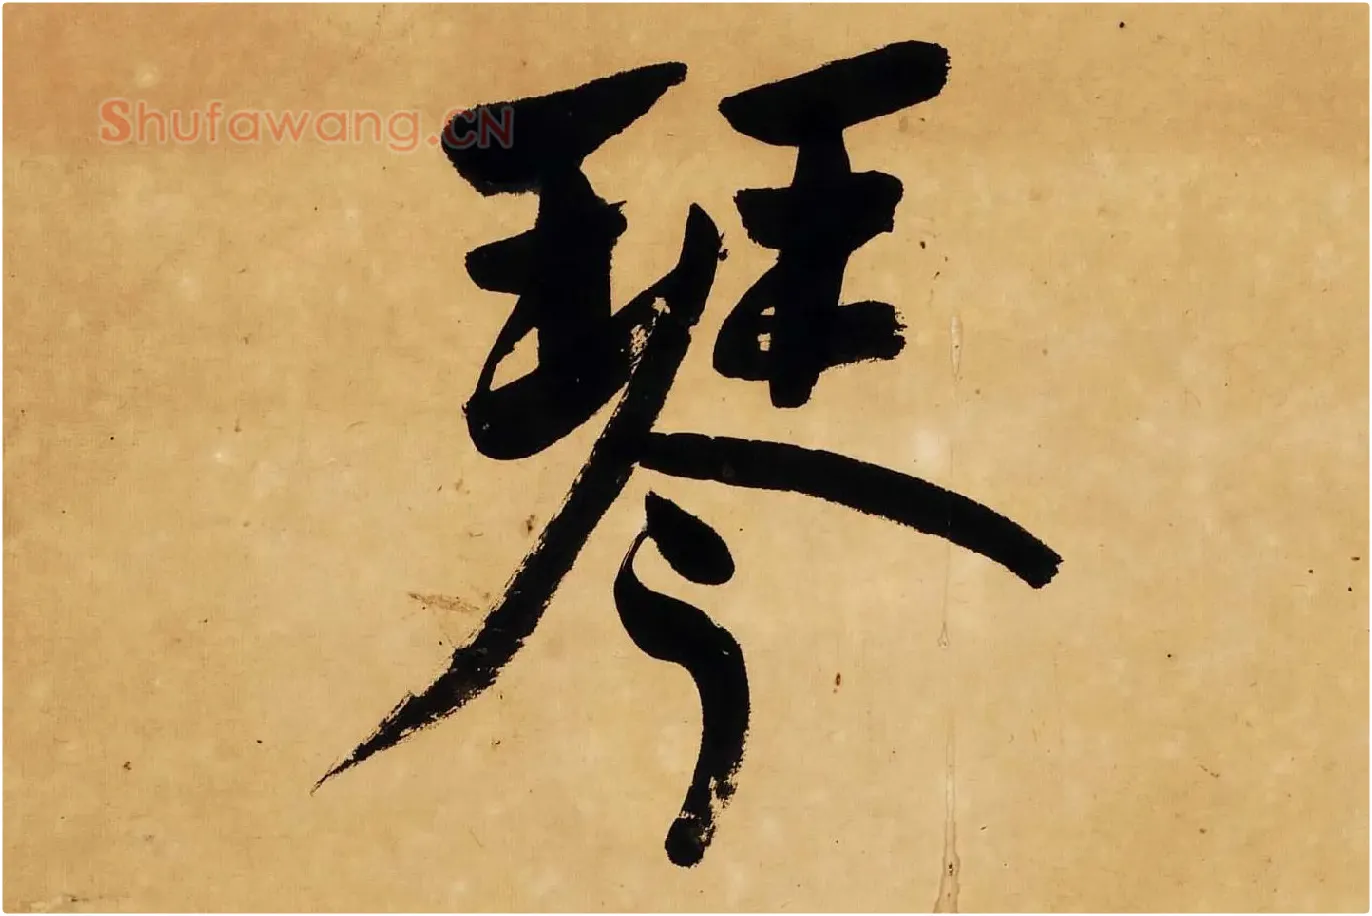 Shufawang.CN
琴